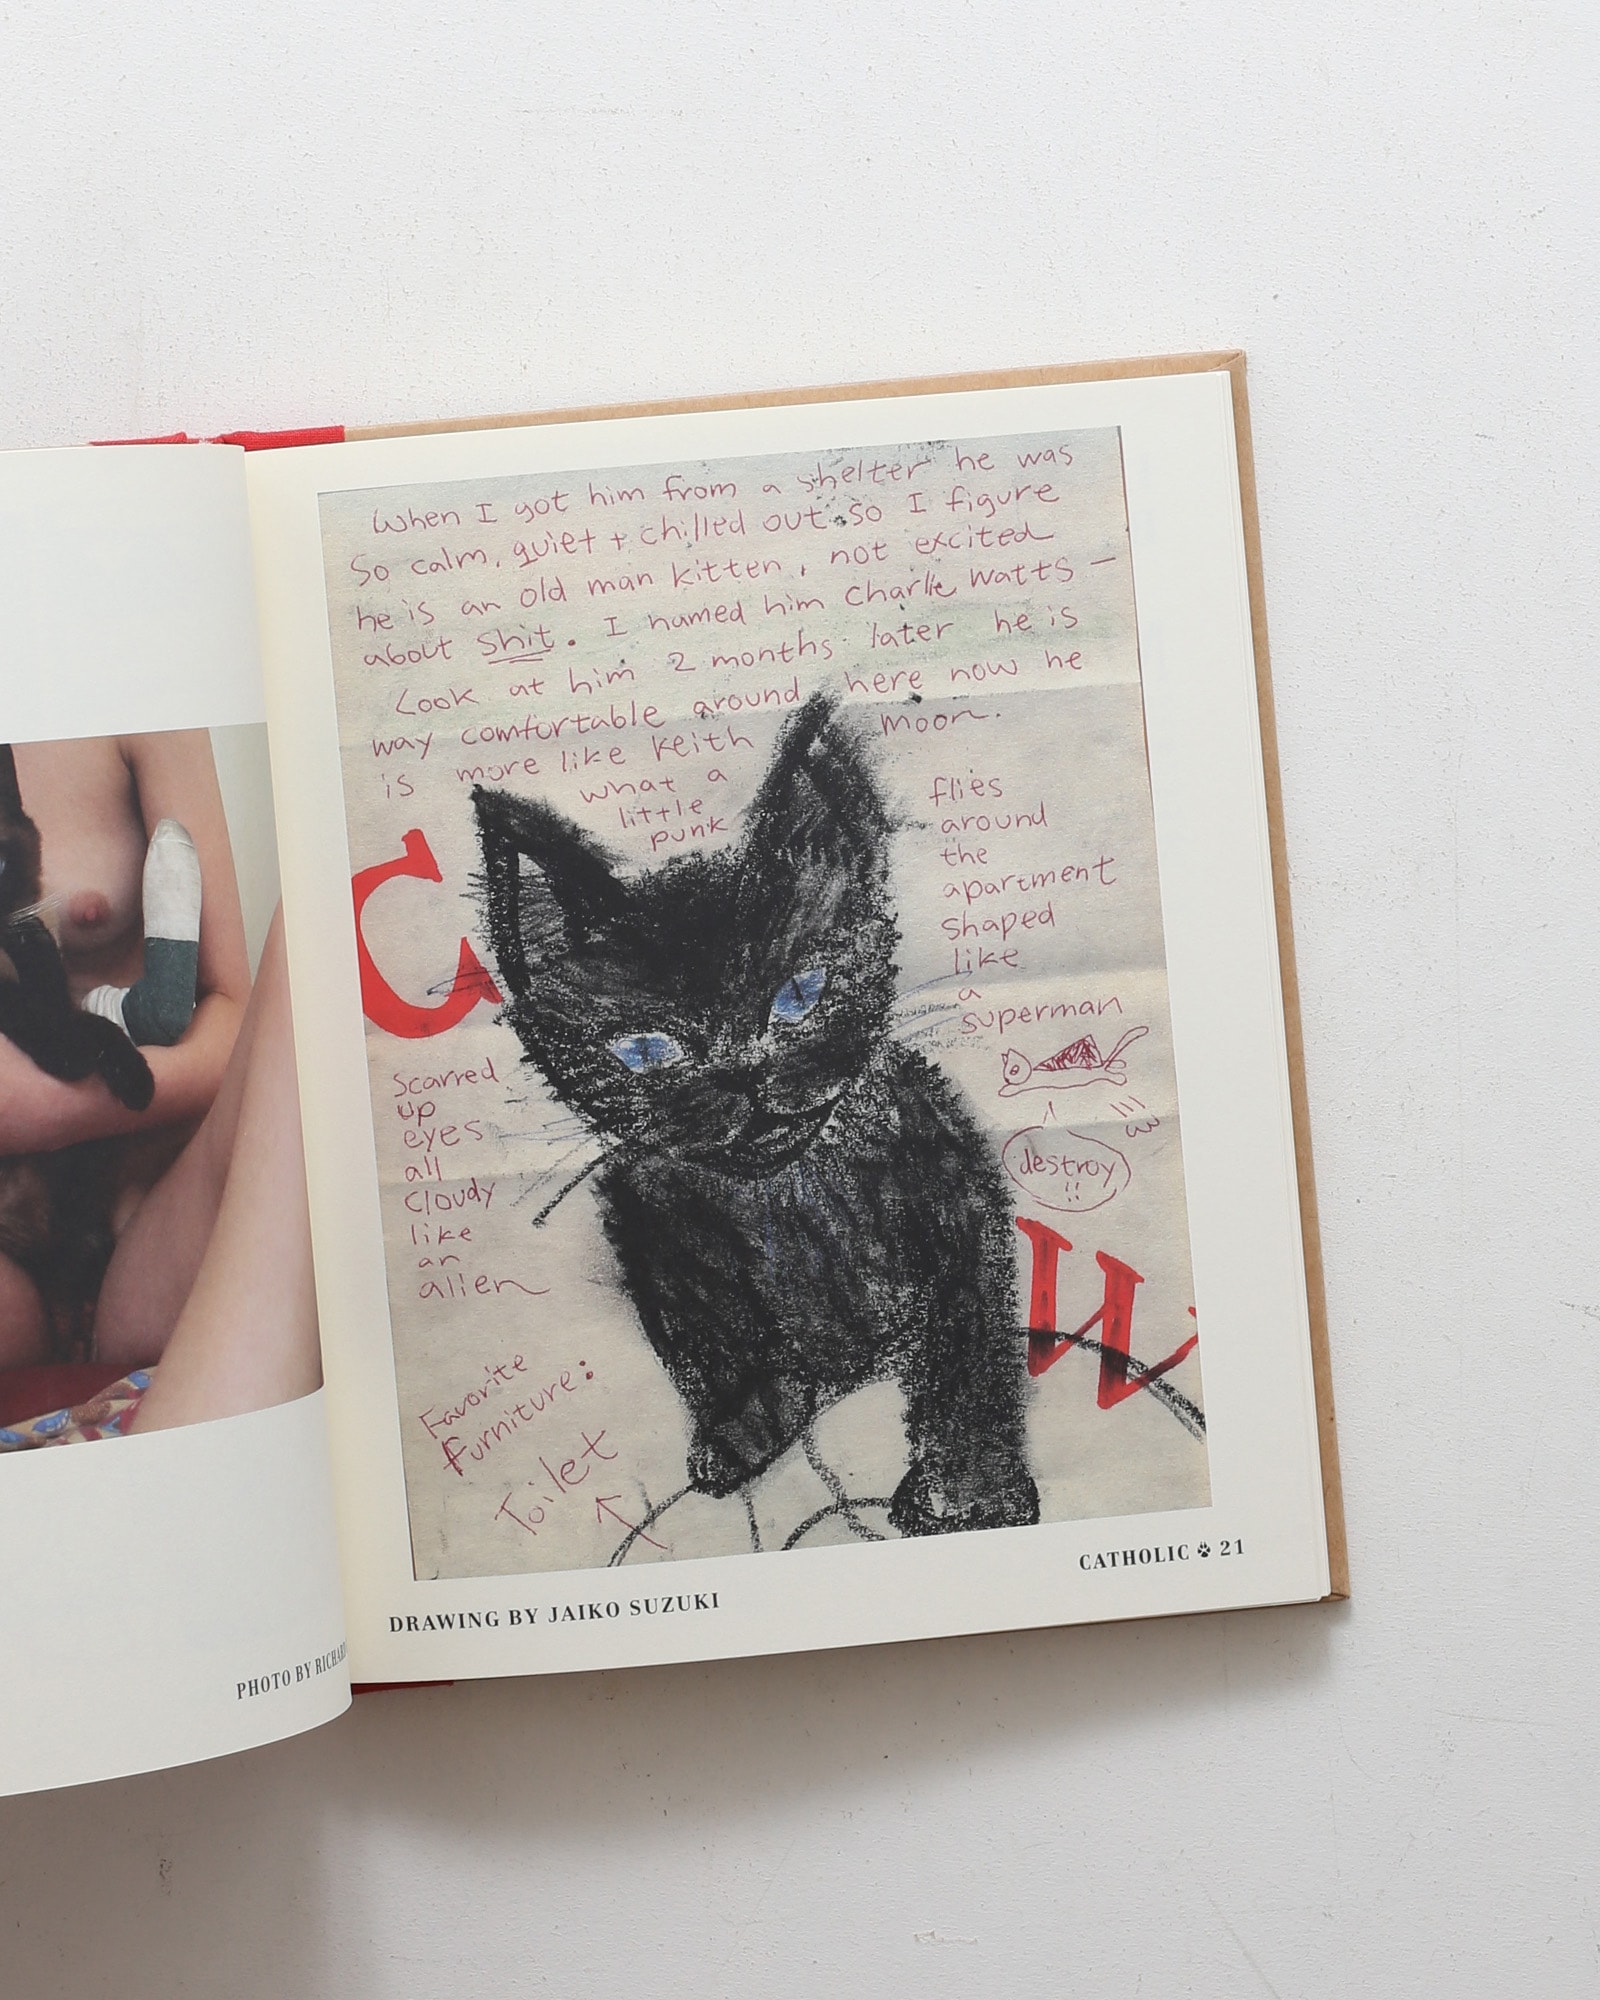 When I got him from a shelter he was
so calm, quiet + chilled out. so I figure
he is an old man kitten, not excited
about shit. I named him Charlie Watts —
Look at him 2 months later he is
way comfortable around here now he
is more like Keith moon.
what a
little
punk
flies
around
the
apartment
shaped
like
a
superman
destroy
!!
C
Scarred
up
eyes
all
cloudy
like
an
alien
Favorite
furniture:
Toilet
DRAWING BY JAIKO SUZUKI
CATHOLIC 21
PHOTO BY